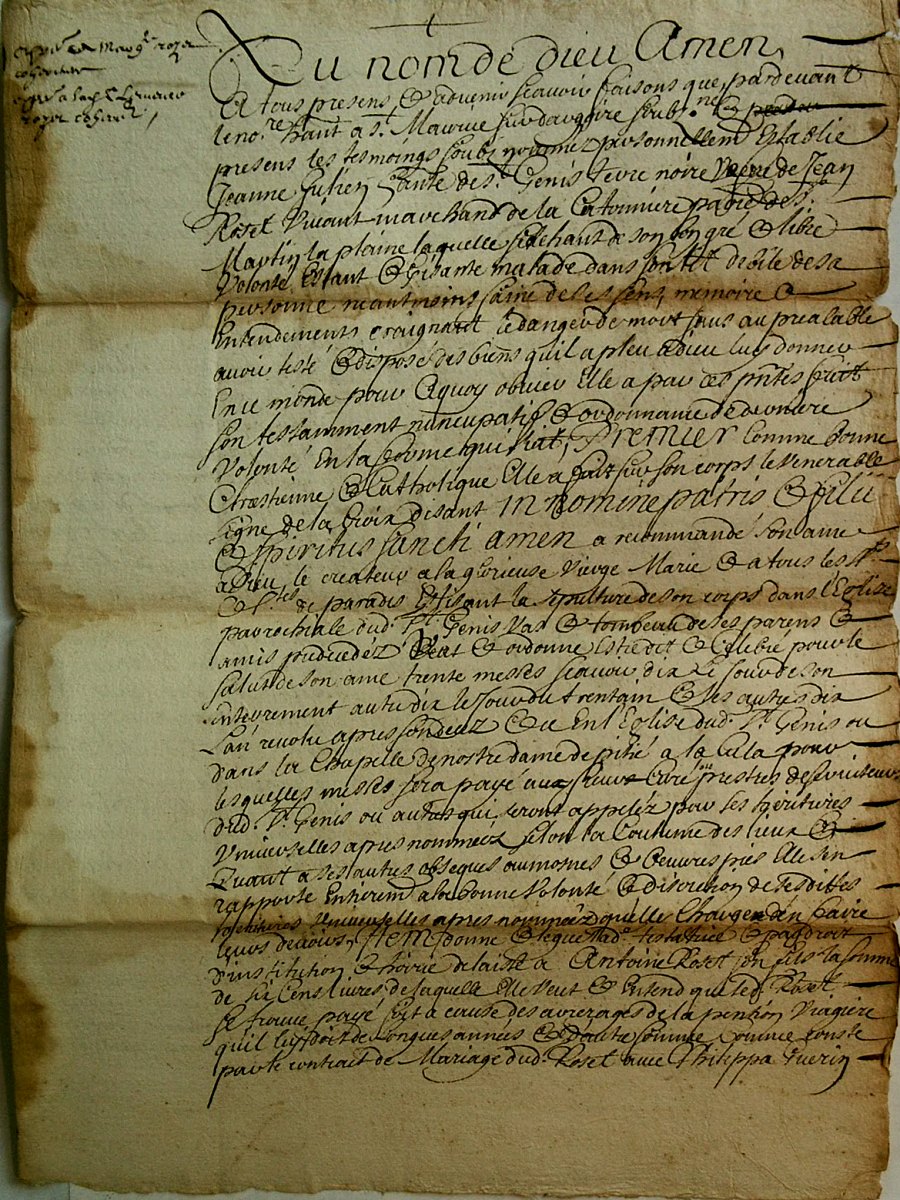 Au nom de dieu Amen
A tous presens & advenir scavoir faisons que pardevant
le no.re haut a St. Maurice sur dargoire soubs.ne &
presens les tesmoings soubs nommez personnellem Establie
Jeanne Julien de St. Genis Terre noire veufve de Jean
Roset vivant marchand de la Catonniere parr.e de St.
Martin la plaine laquelle de son bon gré & libre
Volonté Estant & gisante malade dans son lit debile de sa
personne neantmoins saine de ses sens, memoire &
Entendements craignant le danger de mort sans au prealable
avoir testé & disposé des biens qu'il a pleu a dieu luy donner
En ce monde pour a quoy obvier Elle a par ces p.ntes fait
son testamment nuncupatif & ordonnance de derniere
Volonté En la forme qui suit, Premier comme bonne
Chrestienne & Catholique Elle a fait sur son corps le Venerable
signe de la Croix disant In nomine patris & filii
& spiritus sancti amen a recommandé son ame
a Dieu le createur a la glorieuse Vierge Marie & a tous les S.ts
& S.tes de paradis Elisant la sepulture de son corps dans l'Eglise
parrochiale dud. St. Genis Vas & tombeau de ses parens &
amis predecedez Veut & ordonne Estre dit & Celebré pour le
salut de son ame trente messes scavoir dix le jour de son
enterrement autre dix le jour du trentain & les autres dix
l'an revolu apres son decez & ce En l'Eglise dud. St. Genis ou
dans la Chapelle de nostre dame de pitié a la Cula pour
lesquelles messes sera payé aux prestres desserviteurs
dud. St. Genis ou autres qui seront appelez par ses heritieres
Vniverselles apres nommeez selon la Coutume des lieux &
Quant a ses autres obseques aumosnes & Oeuvres pies Elle s'en
rapporte Entierem a la bonne Volonté & discretion de sesdittes
heritieres Vniverselles apres nommeez qu'elle Charge d'en faire
leurs devoirs, Item donne & legue lad. testatrice & par droit
d'institution & hoirie delaisse a Antoine Roset son fils la somme
de six Cens livres de laquelle Elle Veut & Entend que led. Roset
se trouve payé soit a cause des arrerages de la pention Viagiere
qu'il luy doit de longues années & d'autre somme comme conste
par le contract de Mariage dud. Roset avec Philippa Guerin